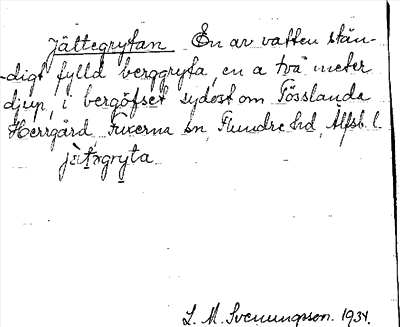 Jättegrytan En av vatten stän-
-digt fylld berggryta, en a två meter
djup, i bergöfset sydost om Tösslanda
Herrgård, Fuxerna sn, Flundre hd, Älfsb. l.
jätngryta
L. M. Svenungsson. 1934.